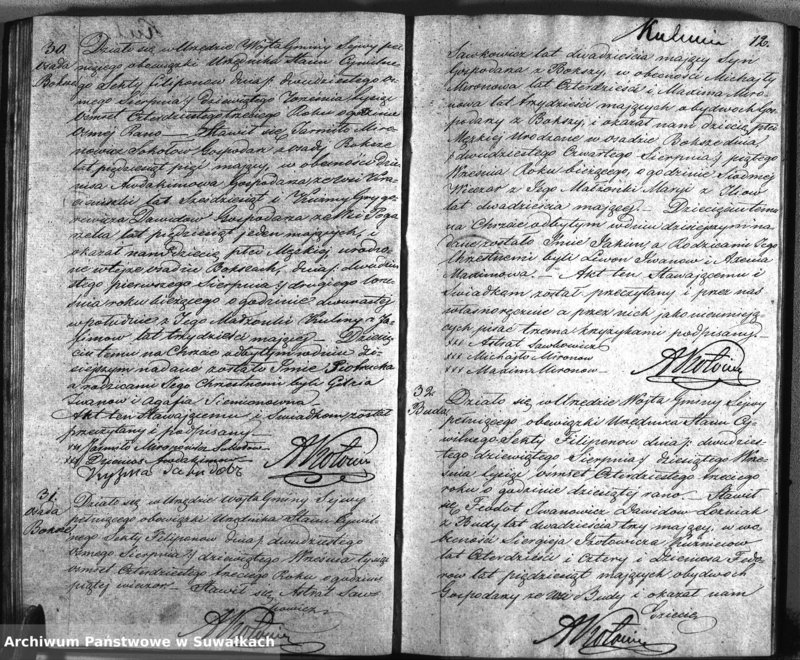 30
Osada
Boksze
Działo się w Urzędzie Wójta Gminy Sejwy peł-
niącego obowiązki Urzędnika Stanu Cywilne-
go Sekty Filiponów dnia dwudziestego ós-
mego Sierpnia/ dziewiątego Września tysiąc
ośmset czterdziestego trzeciego Roku o godzinie
ósmej Rano — Stawił się Jarmiło Miro-
nowicz Sokołow Gospodarz z osady Boksze
lat pięćdziesiąt pięć mający, w obecności Dzie-
nisa Awdakimowa Gospodarza ze Wsi
lat sześdziesiąt i Kuzmy Grygo-
rewicza Dawidow Gospodarza ze Wsi Poga-
nelca lat pięćdziesiąt jeden mających, i
okazał nam Dziecię płci Męzkiej urodzo-
ne w tejże osadzie Bokszach, dnia/ dwudzie-
stego pierwszego Sierpnia/ drugiego Wrze-
śnia roku bieżącego o godzinie dwunastej
w południe z Jego Małżonki
lat trzydzieści mającej — Dziecię-
ciu temu na Chrzcie odbytym w dniu dzi-
siejszym nadane zostało Imie
a rodzicami Jego Chrzestnemi byli
Iwanow i Agafia Siemionowna
Akt ten Stawającemu i Świadkom został
przeczytany i podpisany —
+++ Jarmiło Mironowicz Sokołow
+++ Dzienis Awdakimow
31
Osada
Boksze
Działo się w Urzędzie Wójta Gminy Sejwy
pełniącego obowiązki Urzędnika Stanu Cywil-
nego Sekty Filiponów dnia/ dwudziestego
ósmego Sierpnia/ dziewiątego Września tysiąc
ośmset Czterdziestego trzeciego Roku o godzinie
piątej wieczor — Stawił się Astrat Saw-
kowicz
12.
Sawkowicz lat dwadzieścia mający Syn
Gospodarza z Bokszy, w obecności Michajły
Mironowa lat Czterdzieści i Maxima Miro-
nowa lat trzydzieści mających obydwóch Gos-
podarzy z Bokszy, i okazał nam dziecię płci
Męzkiej urodzone w osadzie Boksze dnia
/dwudziestego Czwartego Sierpnia/ piątego
Września Roku bieżącego, o godzinie Siódmej
Wieczor z Jego Małżonki Maryi z
lat dwadzieścia mającej — Dziecięciu temu
na Chrzcie odbytym w dniu dzisiejszym na-
dane zostało Imie Jakim, a Rodzicami Jego
Chrzestnemi byli Iwanow i Axenia
Maximowa — Akt ten Stawającemu i
Świadkom został przeczytany i przez nas
własnoręcznie a przez nich jako nieumieją-
cych pisać trzema krzyżykami podpisany —
+++ Astrat Sawkowicz
+++ Michajło Mironow
+++ Maxim Mironow
32
Buda
Działo się w Urzędzie Wójta Gminy Sejwy
pełniącego obowiązki Urzędnika Stanu Cy-
wilnego Sekty Filiponów dnia/ dwudzies-
tego dziewiątego Sierpnia/ dziesiątego Wrze-
śnia tysiąc ośmset Czterdziestego trzeciego
roku o godzinie dziesiątej rano — Stawił
się Fedot Iwanowicz Dawidow
z Budy lat dwadzieścia trzy mający, w o-
becności Siergieja Kuźniecow
lat Czterdzieści i Cztery i Dzienisa Fedo-
row lat pięćdziesiąt mających obydwóch
Gospodarzy ze Wsi Budy i okazał nam
Dziecię
Archiwum Państwowe w Suwałkach